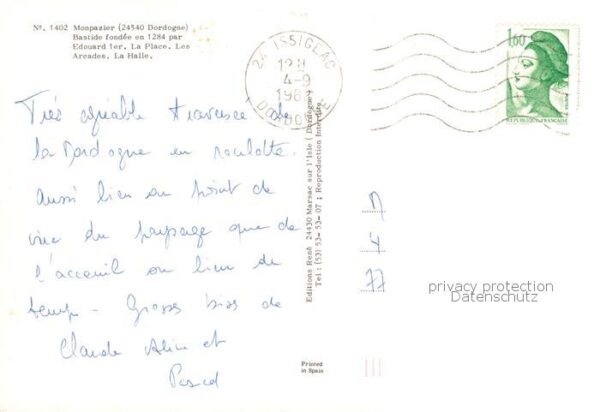 Nº. 1402 Monpazier (24540 Dordogne)
Bastide fondée en 1284 par
Edouard 1er. La Place. Les
Arcades. La Halle.
24 ISSIGEAC
4-9
DORDOGNE
1,60
REPUBLIQUE FRANÇAISE
Très agréable traversée de
la Dordogne en roulotte
aussi bien au point de
vue du paysage que de
l'acceuil ou bien du
temps - Grosses bises de
Claude Aline et
Pascal
Editions René 24430 Marsac sur l'Isle (Dordogne)
Tel: (53) 53-53-07; Reproduction Interdite
Printed
in Spain
privacy protection
Datenschutz